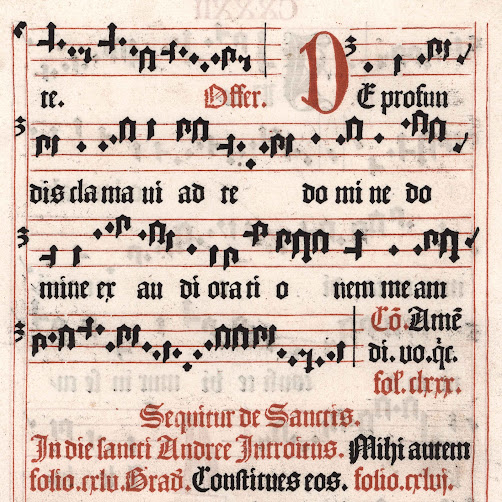 CXXXII
re. Offer. DE profun
dis clamaui ad te domine do
mine ex audi oratio nem meam
Cō. Amē
di. vo. qc̄.
fol. clxxx.
Sequitur de Sanctis.
In die sancti Andree Introitus. Mihi autem
folio. cxlv. Grad. Constitues eos. folio. cxlvj.